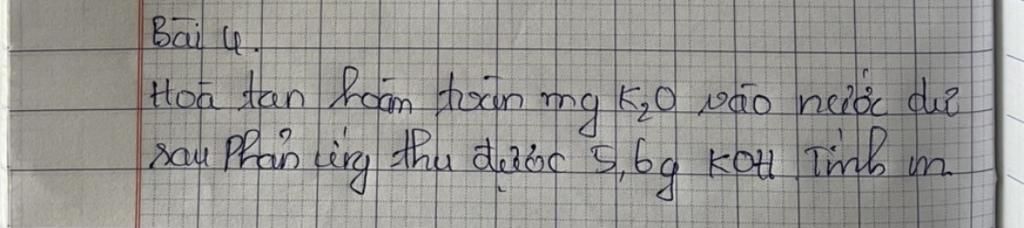 Bài 4.
Hoà tan hoàn toàn mg K₂O vào nước dư
sau phản ứng thu được 5,6g KOH Tính m